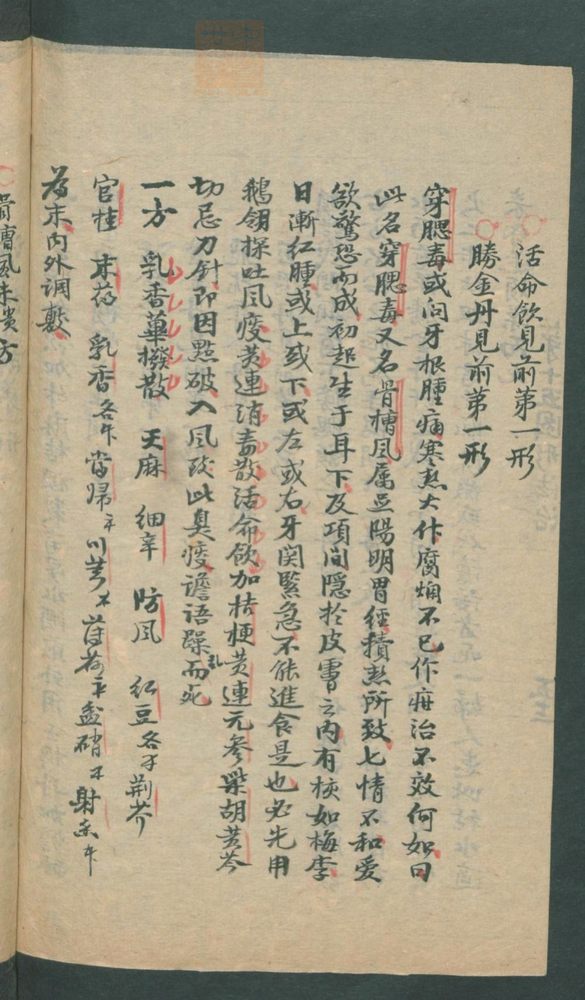 活命飲見前第一形
勝金丹見前第一形
穿腮毒或问牙根腫痛寒热大作腐烂不已作疳治不效何如曰
此名穿腮毒又名骨槽風属足陽明胃經積热所致七情不和憂
欲驚恐而成初起生于耳下及項间隱於皮膚之内有核如梅李
日漸红腫或上或下或左或右牙関緊急不能進食是也必先用
鵝翎探吐風痰黄連消毒散活命飲加桔梗黄連元參柴胡黄芩
切忌刀針即因點破入風致此臭痰譫语躁乱而死
一方 乳香蓽撥散 天麻 细辛 防風 红豆各 荆芥
官桂 末药 乳香各 當归 川芎 薄荷 盆硝 射香
為末内外调敷
骨槽風未潰方